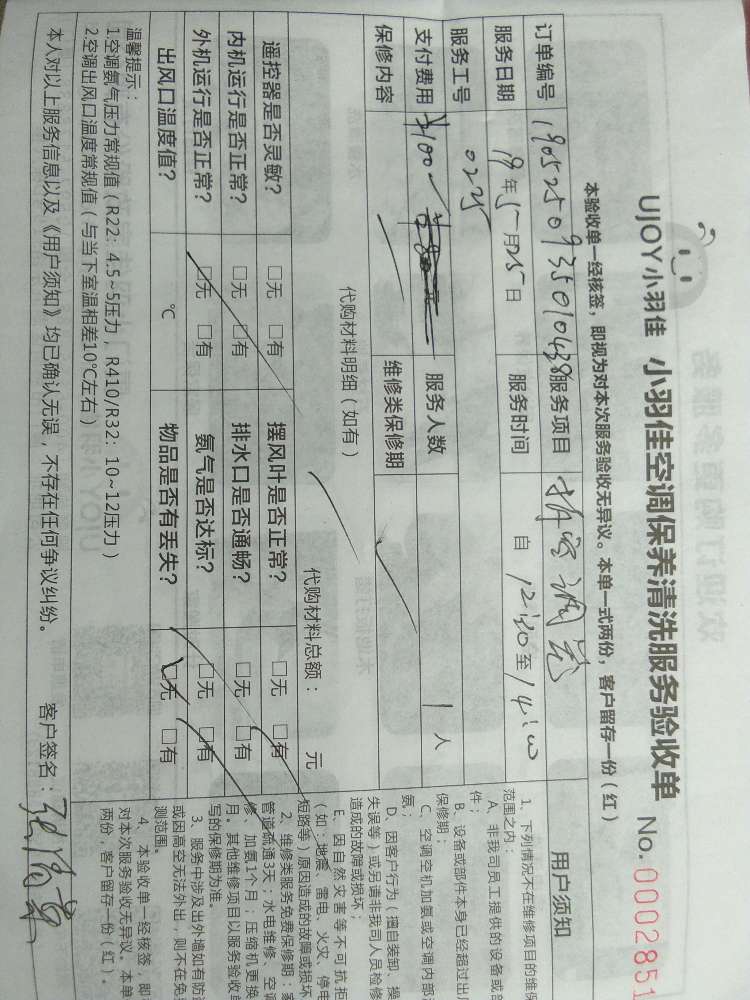 UJOY小羽佳 小羽佳空调保养清洗服务验收单 No. 0002851
本验收单一经核签，即视为对本次服务验收无异议。本单一式两份，客户留存一份（红）
订单编号 1905250935010438 服务项目
服务日期 19年5月25日 服务时间 自 12:20 至 14:00
服务工号 0225
支付费用 ¥100 服务人数 1人
保修内容 维修类保修期
代购材料明细（如有） 代购材料总额： 元
遥控器是否灵敏？ □无 □有 摆风叶是否正常？ □无 □有
内机运行是否正常？ □无 □有 排水口是否通畅？ □无 □有
外机运行是否正常？ □无 □有 氨气是否达标？ □无 □有
出风口温度值？ ℃ 物品是否有丢失？ □无 □有
温馨提示：
1.空调氨气压力常规值（R22：4.5~5压力，R410/R32：10~12压力）
2.空调出风口温度常规值（与当下室温相差10℃左右）
本人对以上服务信息以及《用户须知》均已确认无误，不存在任何争议纠纷。 客户签名：
用户须知
1、下列情况不在维修项目的维保
范围之内：
A、非我司员工提供的设备或部
件；
B、设备或部件本身已经超过出厂
保修期；
C、空调空机加氨或空调内部
氨；
D、因客户行为（擅自装卸、操
失误等）或另请非我司人员检修
造成的故障或损坏；
E、因自然灾害等不可抗拒
（如：地震、雷电、火灾、停电
短路等）原因造成的故障或损坏
2、维修类服务免费保修期：
管道疏通3天；水电维修、空调
修、加氨1个月；压缩机更换
月。其他维修项目以服务验收单
写的保修期为准。
3、服务中涉及出外墙如有防
或因高空无法外出，则不在免
测范围。
4、本验收单一经核签，即
对本次服务验收无异议。本单
两份，客户留存一份（红）。